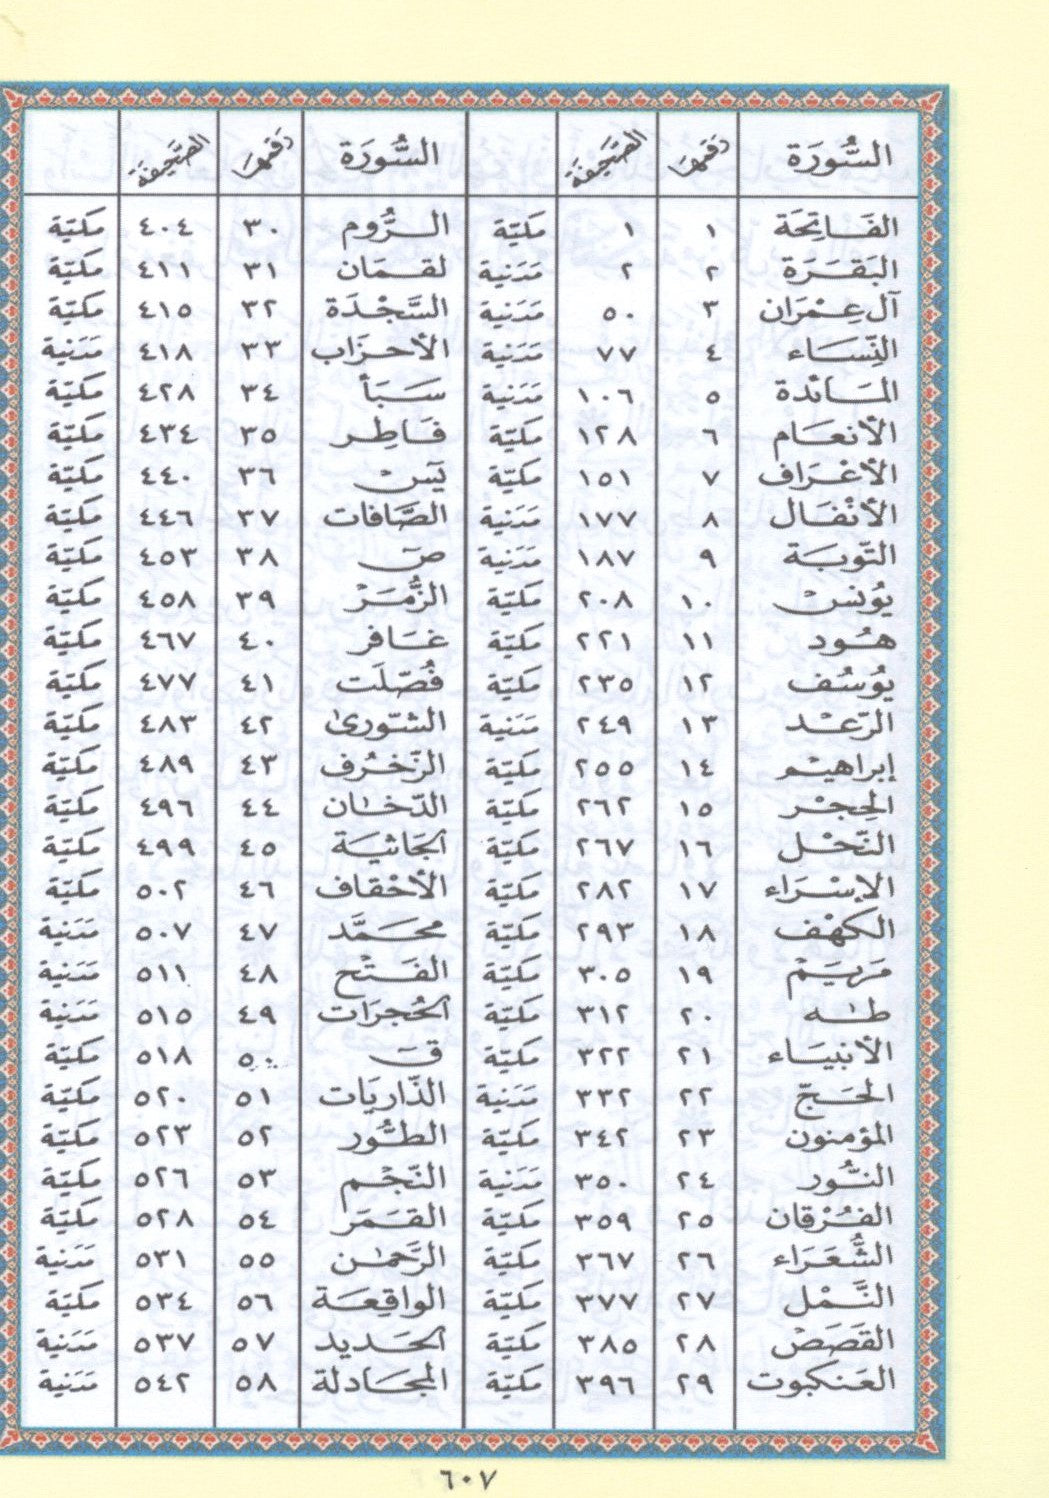 السُّورَة رقمها الصَّحِيفَة السُّورَة رقمها الصَّحِيفَة
الفَاتِحَة ١ ١ مَكيّة الرُّوم ٣٠ ٤٠٤ مَكيّة
البَقَرَة ٢ ٢ مَدَنية لقمَان ٣١ ٤١١ مَكيّة
آل عِمْرَان ٣ ٥٠ مَدَنية السَّجْدَة ٣٢ ٤١٥ مَكيّة
النِّسَاء ٤ ٧٧ مَدَنية الأحزَاب ٣٣ ٤١٨ مَدَنية
المَائدة ٥ ١٠٦ مَدَنية سَبَأ ٣٤ ٤٢٨ مَكيّة
الأنعَام ٦ ١٢٨ مَكيّة فَاطِر ٣٥ ٤٣٤ مَكيّة
الأعْرَاف ٧ ١٥١ مَكيّة يٓسْ ٣٦ ٤٤٠ مَكيّة
الأنْفَال ٨ ١٧٧ مَدَنية الصَّافات ٣٧ ٤٤٦ مَكيّة
التّوبَة ٩ ١٨٧ مَدَنية صٓ ٣٨ ٤٥٣ مَكيّة
يُونسْ ١٠ ٢٠٨ مَكيّة الزُّمَرْ ٣٩ ٤٥٨ مَكيّة
هُود ١١ ٢٢١ مَكيّة غَافر ٤٠ ٤٦٧ مَكيّة
يُوسُف ١٢ ٢٣٥ مَكيّة فُصّلَت ٤١ ٤٧٧ مَكيّة
الرّعْد ١٣ ٢٤٩ مَدَنية الشّورىٰ ٤٢ ٤٨٣ مَكيّة
إبراهيْم ١٤ ٢٥٥ مَكيّة الزّخرُف ٤٣ ٤٨٩ مَكيّة
الحِجْر ١٥ ٢٦٢ مَكيّة الدّخان ٤٤ ٤٩٦ مَكيّة
النّحْل ١٦ ٢٦٧ مَكيّة الجَاثيَة ٤٥ ٤٩٩ مَكيّة
الإسْرَاء ١٧ ٢٨٢ مَكيّة الأحْقاف ٤٦ ٥٠٢ مَكيّة
الكَهْف ١٨ ٢٩٣ مَكيّة محَمَّد ٤٧ ٥٠٧ مَدَنية
مَريَمْ ١٩ ٣٠٥ مَكيّة الفَتْح ٤٨ ٥١١ مَدَنية
طـٰه ٢٠ ٣١٢ مَكيّة الحُجرَات ٤٩ ٥١٥ مَدَنية
الأنبيَاء ٢١ ٣٢٢ مَكيّة قٓ ٥٠ ٥١٨ مَكيّة
الحَجّ ٢٢ ٣٣٢ مَدَنية الذّاريَات ٥١ ٥٢٠ مَكيّة
المؤمنون ٢٣ ٣٤٢ مَكيّة الطُّور ٥٢ ٥٢٣ مَكيّة
النُّور ٢٤ ٣٥٠ مَدَنية النّجْم ٥٣ ٥٢٦ مَكيّة
الفُرْقان ٢٥ ٣٥٩ مَكيّة القَمَر ٥٤ ٥٢٨ مَكيّة
الشُّعَرَاء ٢٦ ٣٦٧ مَكيّة الرَّحمٰن ٥٥ ٥٣١ مَدَنية
النَّمْل ٢٧ ٣٧٧ مَكيّة الواقِعَة ٥٦ ٥٣٤ مَكيّة
القَصَصْ ٢٨ ٣٨٥ مَكيّة الحَديد ٥٧ ٥٣٧ مَدَنية
العَنكبوت ٢٩ ٣٩٦ مَكيّة المجَادلة ٥٨ ٥٤٢ مَدَنية
٦٠٧